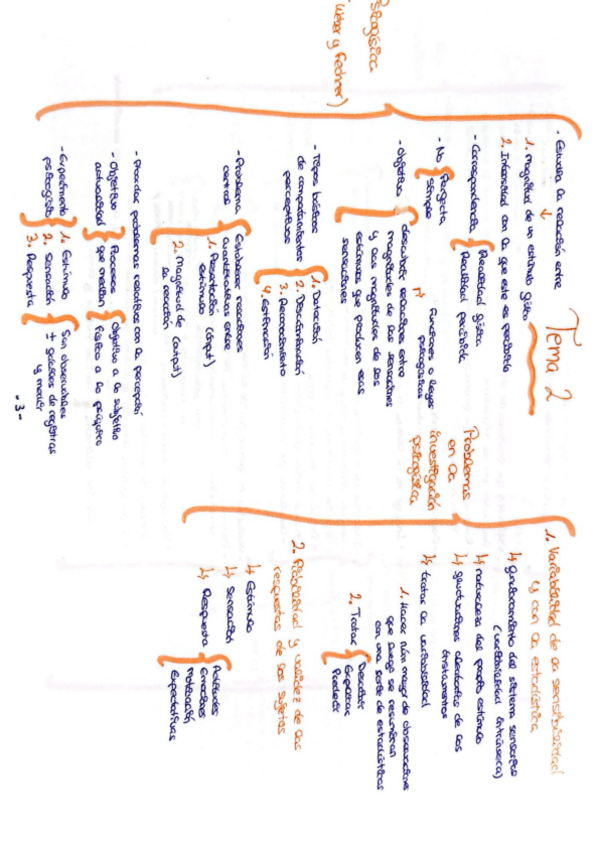 Tema 2
Psicofísica
(Weber y Fechner)
- Estudia la relación entre
1. Magnitud de un estímulo físico
2. Intensidad con la que este es percibido
- Correspondencia
Realidad física
Realidad percibida
- No
Perfecta
Simple
- Objetivo
descubrir relaciones entre
magnitudes de las sensaciones
y las magnitudes de los
estímulos que producen esas
sensaciones
Funciones o leyes
psicofísicas
- Tipos básicos
de comportamientos
perceptivos
1. Detección
2. Discriminación
3. Reconocimiento
4. Estimación
- Problema
central
Establecer relaciones
cuantitativas entre
1. Presentación (input)
estímulo
2. Magnitud de (output)
la reacción
- Abordar problemas relativos con la percepción
- Objetivo
actualidad
Procesos
que median
Objetivo a lo subjetivo
Físico a lo psíquico
- Experimento
psicofísico
1. Estímulo
2. Sensación
3. Respuesta
Son observables
± fáciles de registrar
y medir
- 3 -
Problemas
en la
investigación
psicofísica
1. Variabilidad de la sensibilidad
y con la estadística
↳ funcionamiento del sistema sensorial
(variabilidad intrínseca)
↳ naturaleza del propio estímulo
↳ fluctuaciones aleatorias de los
instrumentos
↳ tratar la variabilidad
1. Hacer núm mayor de observaciones
que luego se resumirán
con una serie de estadísticos
2. Tratar
Describir
Explicar
Predecir
2. Fiabilidad y validez de las
respuestas de los sujetos
↳ Estímulo
↳ Sensación
↳ Respuesta
Actitudes
Emociones
motivación
Expectativas